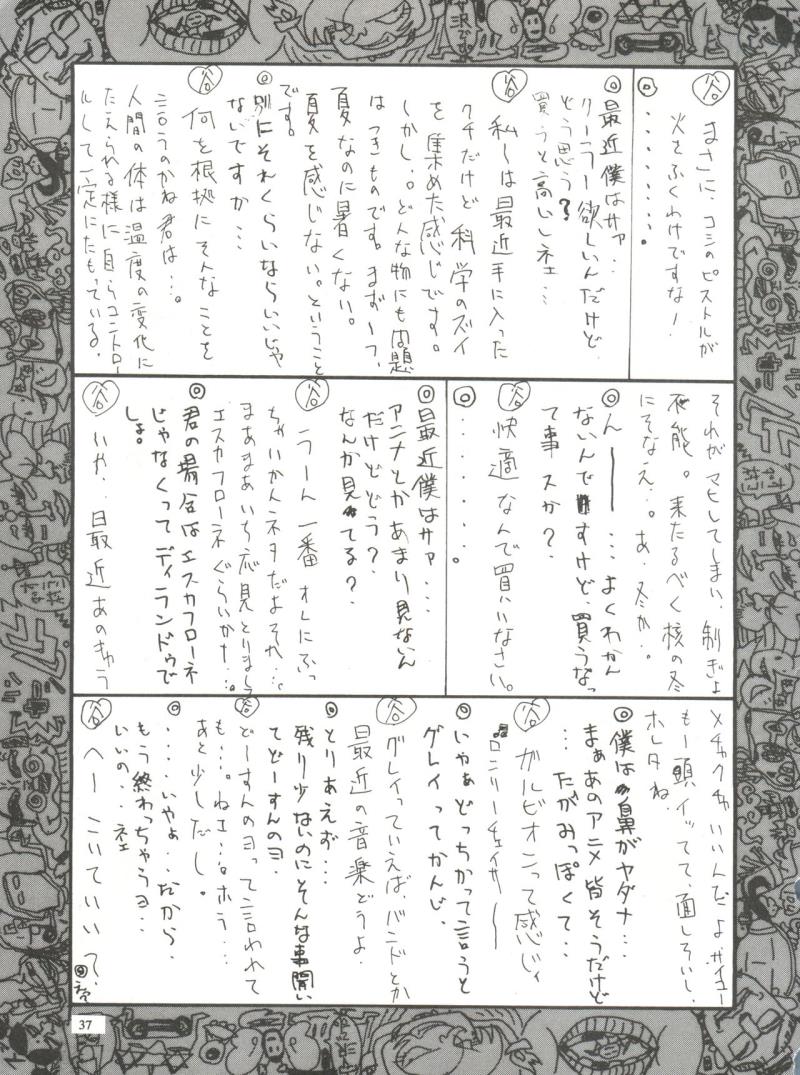 谷 まさに、コシのピストルが
火をふくわけですな！
◎ ・・・・・・・・。
◎ 最近僕はサァ・・・
リーラー欲しいんだけど、
どう思う？
買うと高いしネェ・・・
谷 私しは最近手に入った
クチだけど 科学のズイ
を集めた感じです。
しかし・。どんな物にも問題
はつきものです。まず一つ、
夏なのに暑くない。
夏を感じない。ということ
です。
◎ 別にそれくらいならいいじゃ
ないですか・・・
谷 何を根拠にそんなことを
言うのかね君は・・・。
人間の体は温度の変化に
たえられる様に自らコントロー
ルして一定にたもっている。
それがマヒしてしまい、制ぎょ
不能。来たるべく核の冬
にそなえ・・。あ、冬か・・
◎ んーーー・・・よくわかん
ないんですけど、買うなっ
て事っスか？
谷 快適なんで買いなさい。
◎ ・・・・・・・・。
◎ 最近僕はサァ・・・・
アンナとかあまり見ないん
だけどどう？
なんか見てる？
谷 うーん 一番 オレにふっ
ちゃいかんネタだよそれ・・・
まあまあいち応見とりまし
エスカフローネぐらいか！・・。
◎ 君の場合はエスカフローネ
じゃなくってディランドゥで
しょ。
谷 いや・・最近あのきゅう
メチャクチャいいんだよサイコー
もー頭イッてて、面しろいし、
ホレタね。
◎ 僕は鼻がヤダナ・・・
まぁあのアニメ皆そうだけど
・・・たがみっぽくて・・・
谷 ガルビオンって感じ
♫ロンリーチェイサー
◎ いやぁどっちかって言うと
グレイってかんじ。
谷 グレイっていえば、バンドとか
最近の音楽どうよ。
◎ とりあえず・・・
残り少ないのにそんな事聞い
てどーすんのヨ。
谷 どーすんのヨって言われて
も・・・。ねェ・・・ホラ・・・
あと少しだし。
◎ ・・・・いやょ・・だから、
もう終わっちゃうヨ・・・
いいの・・ネェ
谷 へー こいていい？、
37